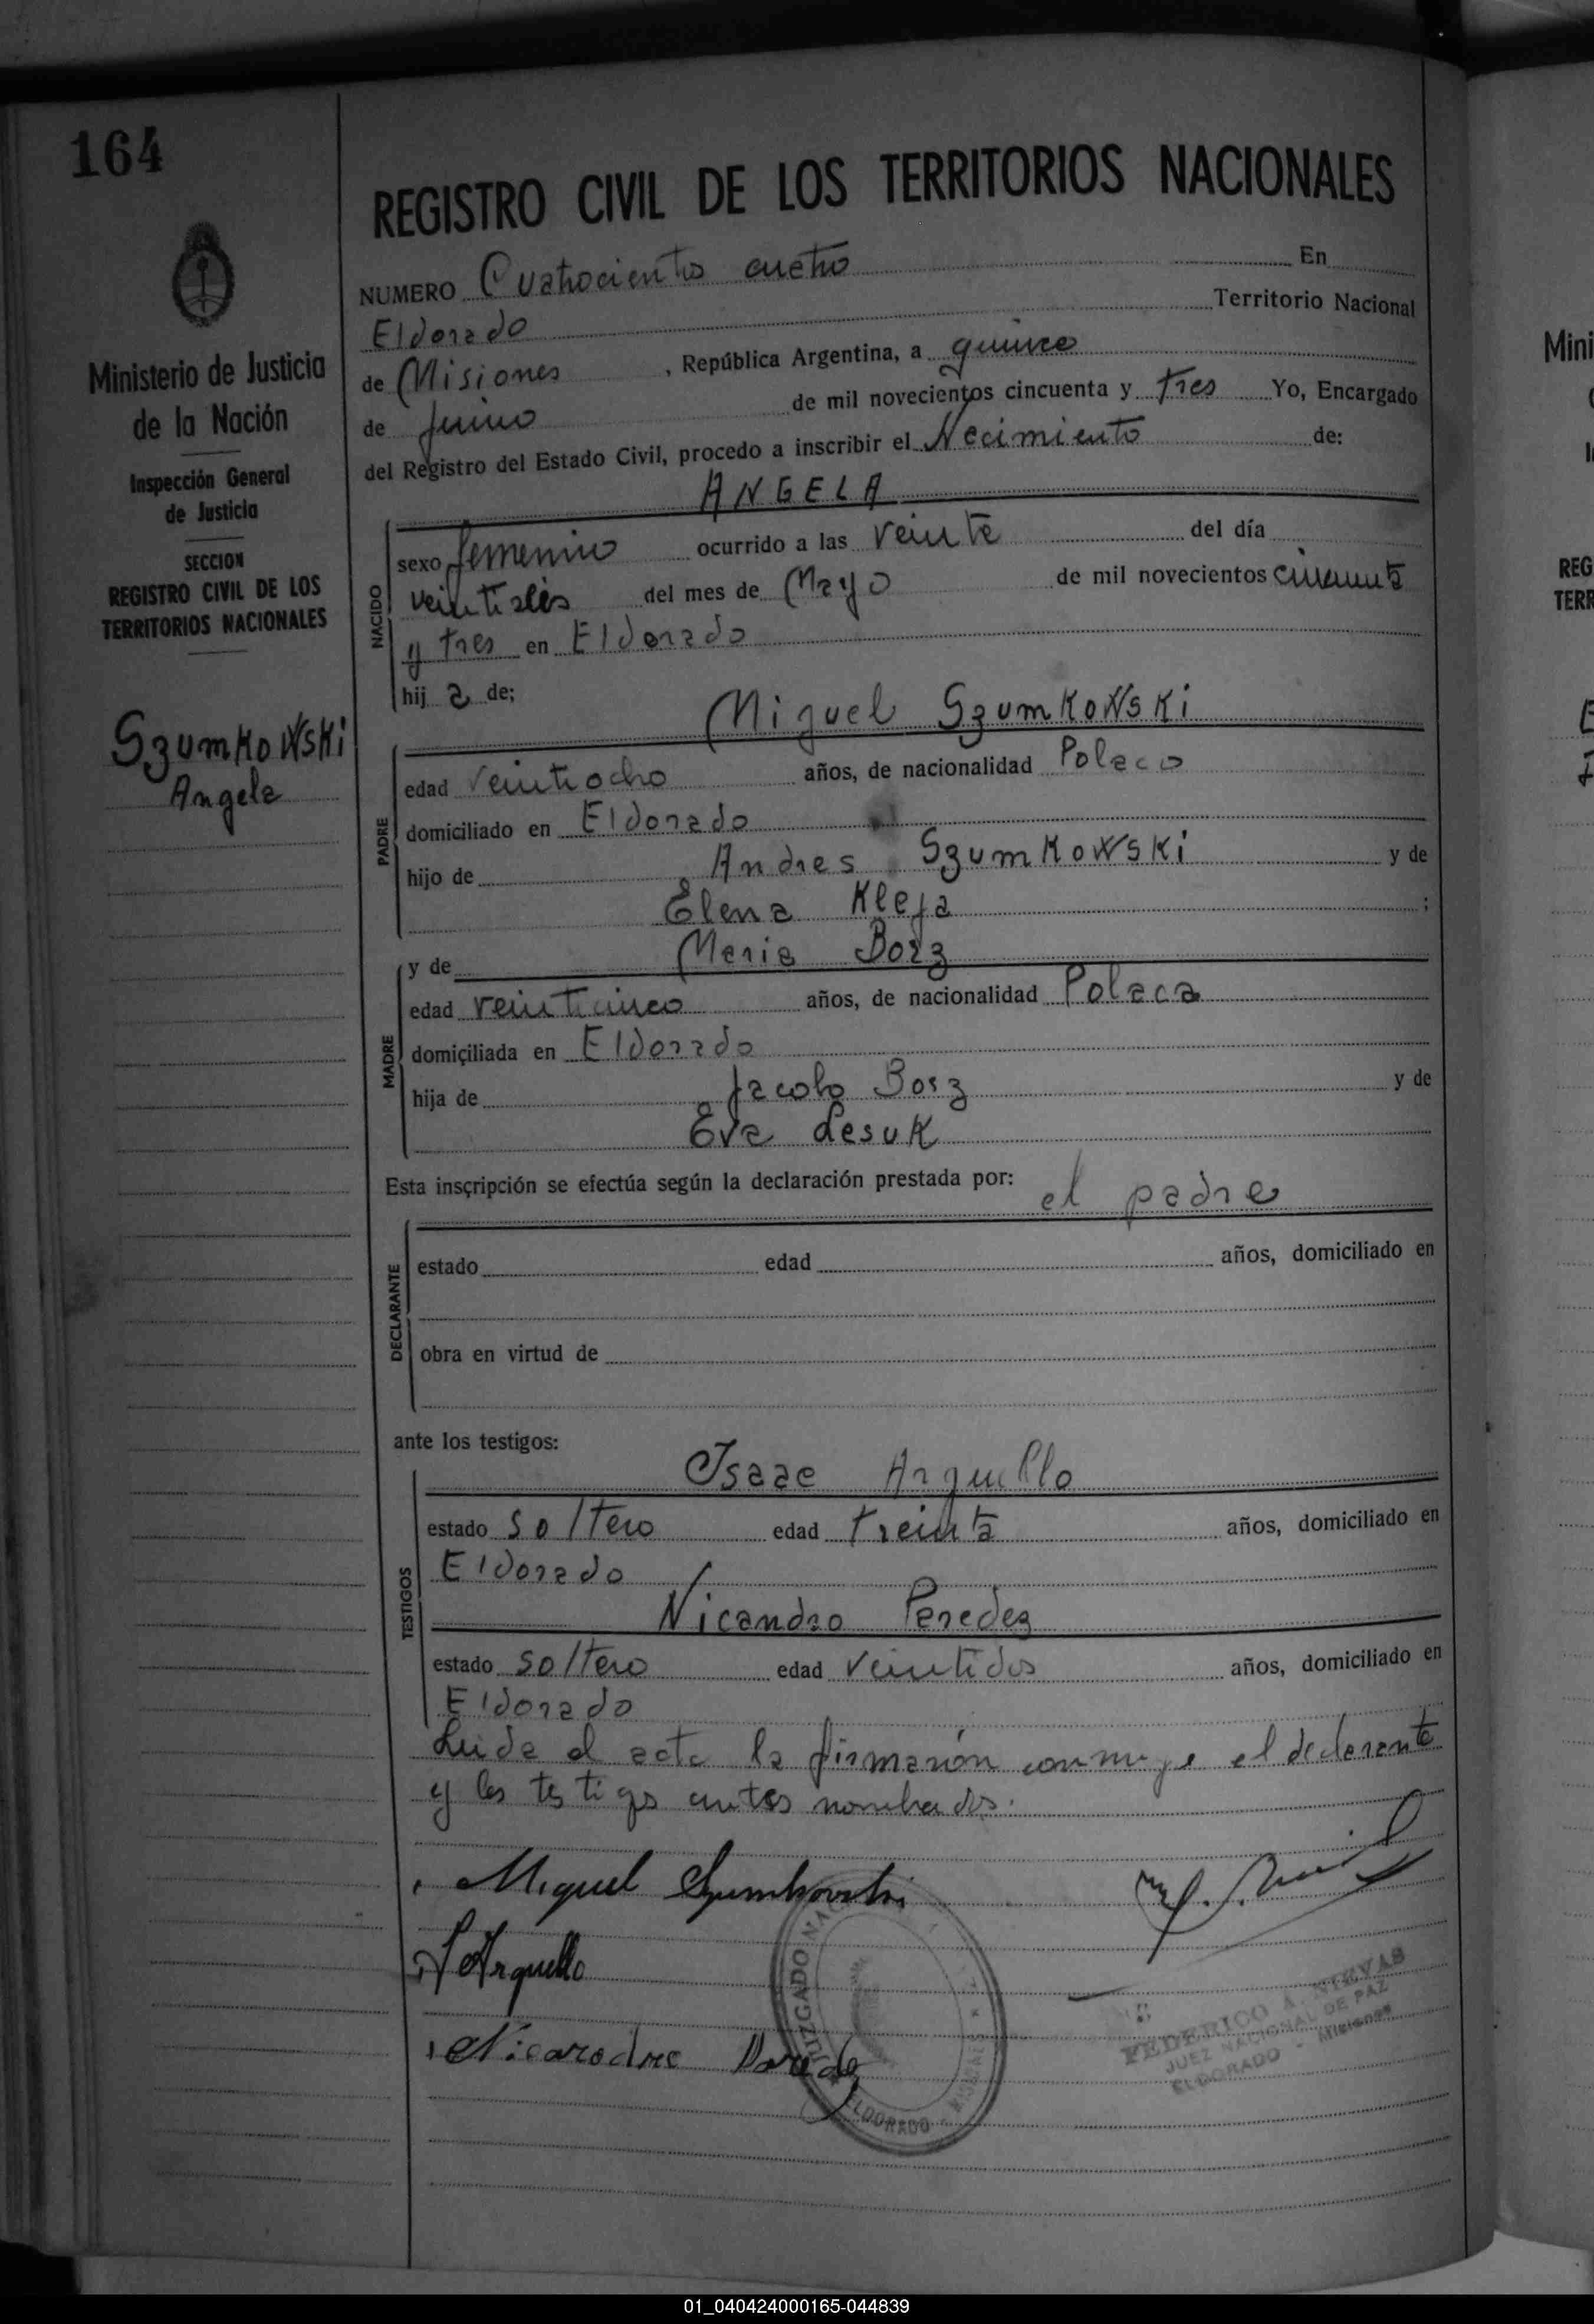 164
Ministerio de Justicia
de la Nación
Inspección General
de Justicia
SECCION
REGISTRO CIVIL DE LOS
TERRITORIOS NACIONALES
Szumkowski
Angela
REGISTRO CIVIL DE LOS TERRITORIOS NACIONALES
NUMERO Cuatrocientos cuatro En
Eldorado Territorio Nacional
de Misiones, República Argentina, a quince
de Junio de mil novecientos cincuenta y tres Yo, Encargado
del Registro del Estado Civil, procedo a inscribir el Nacimiento de:
ANGELA
NACIDO
sexo femenino ocurrido a las veinte del día
veintiseis del mes de Mayo de mil novecientos cincuenta
y tres en Eldorado
hij a de;
Miguel Szumkowski
PADRE
edad veintiocho años, de nacionalidad Polaco
domiciliado en Eldorado
hijo de Andres Szumkowski y de
Elena Kleja;
y de Maria Borz
MADRE
edad veinticinco años, de nacionalidad Polaca
domiciliada en Eldorado
hija de Jacobo Borz y de
Eva Lesuk
Esta inscripción se efectúa según la declaración prestada por: el padre
DECLARANTE
estado edad años, domiciliado en
obra en virtud de
ante los testigos:
Isaac Arguello
TESTIGOS
estado soltero edad treinta años, domiciliado en
Eldorado
Nicandro Paredez
estado soltero edad veintidos años, domiciliado en
Eldorado
Leida el acta la firmarón conmigo el declarante
y los testigos antes nombrados.
Miguel Szumkowski
I Arguello
Nicarodre Parede
JUZGADO NAC
ELDORADO MISIONES
FEDERICO A. NIEVAS
JUEZ NACIONAL DE PAZ
ELDORADO - Misiones
Mini
REG
TERR
01_040424000165-044839